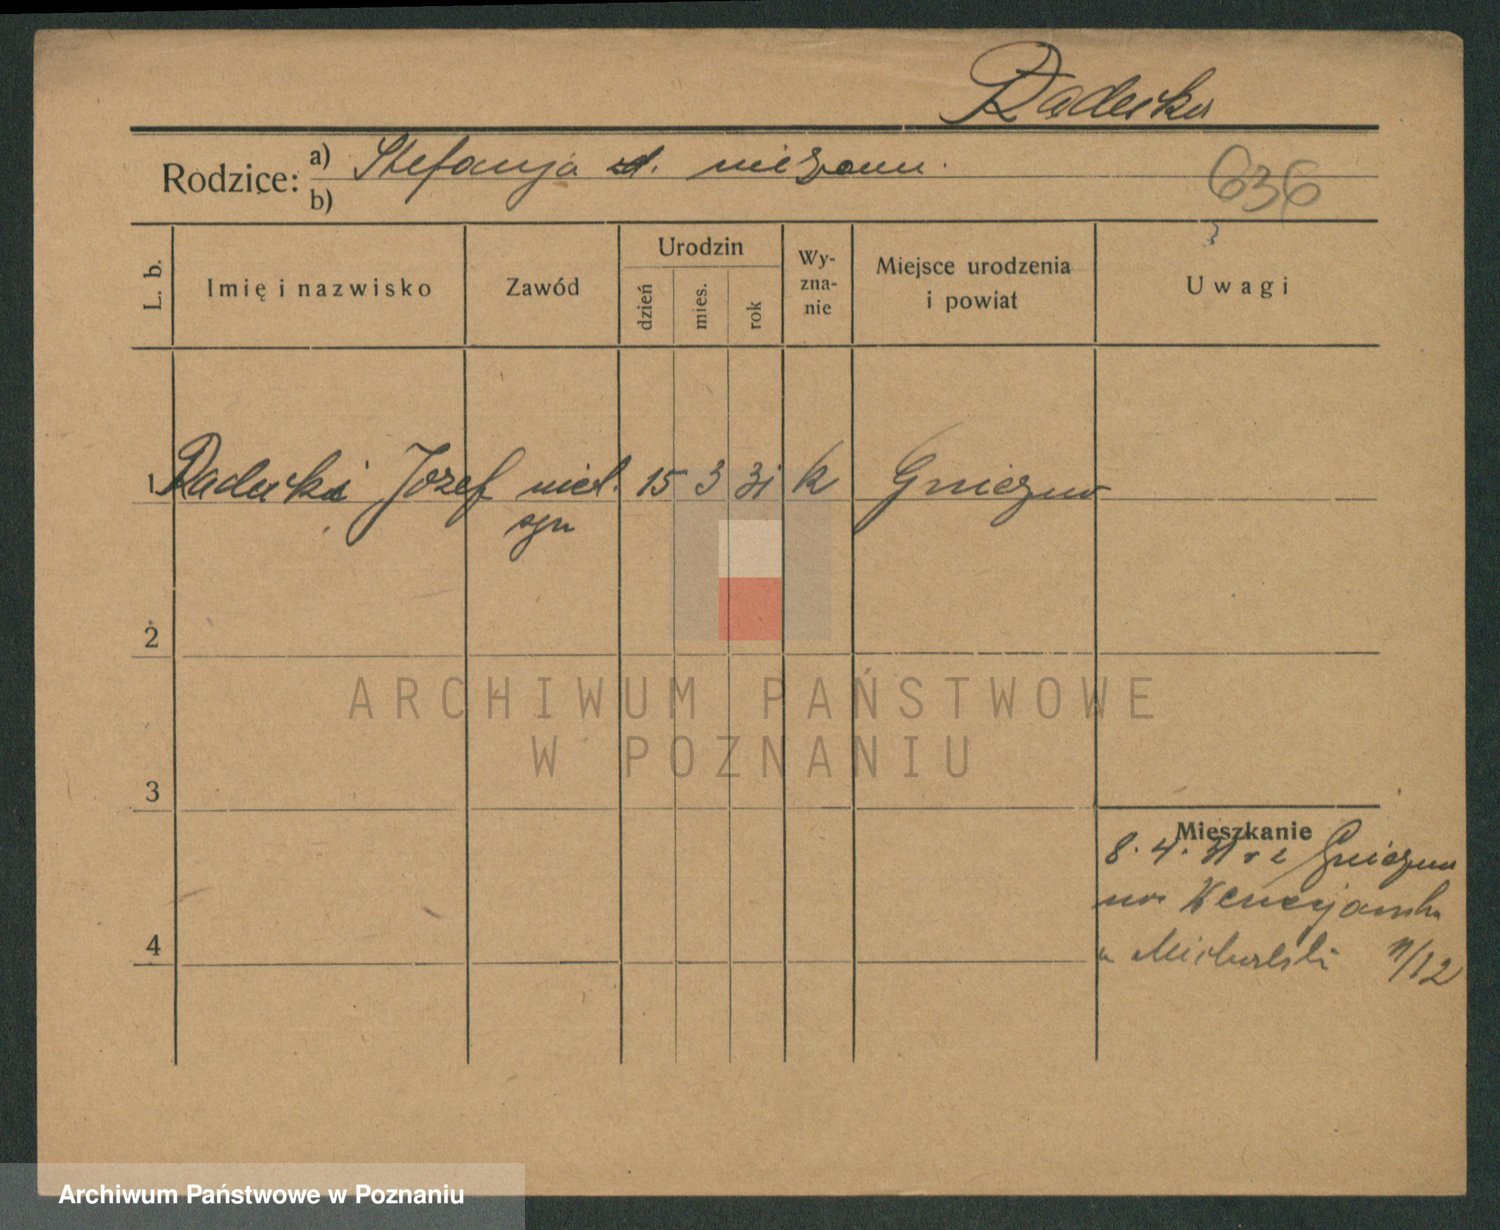 Radecka
Rodzice: a) Stefanja niezam.
b)
636
L. b.
Imię i nazwisko
Zawód
Urodzin
dzień
mies.
rok
Wy-
zna-
nie
Miejsce urodzenia
i powiat
Uwagi
1 Radecki Józef niel. 15 3 31 k Gniezno
syn
2
3
4
ARCHIWUM PAŃSTWOWE
W POZNANIU
Mieszkanie
8. 4. 31 Gniezno
Wenecjańska
u Michalski 11/12
Archiwum Państwowe w Poznaniu